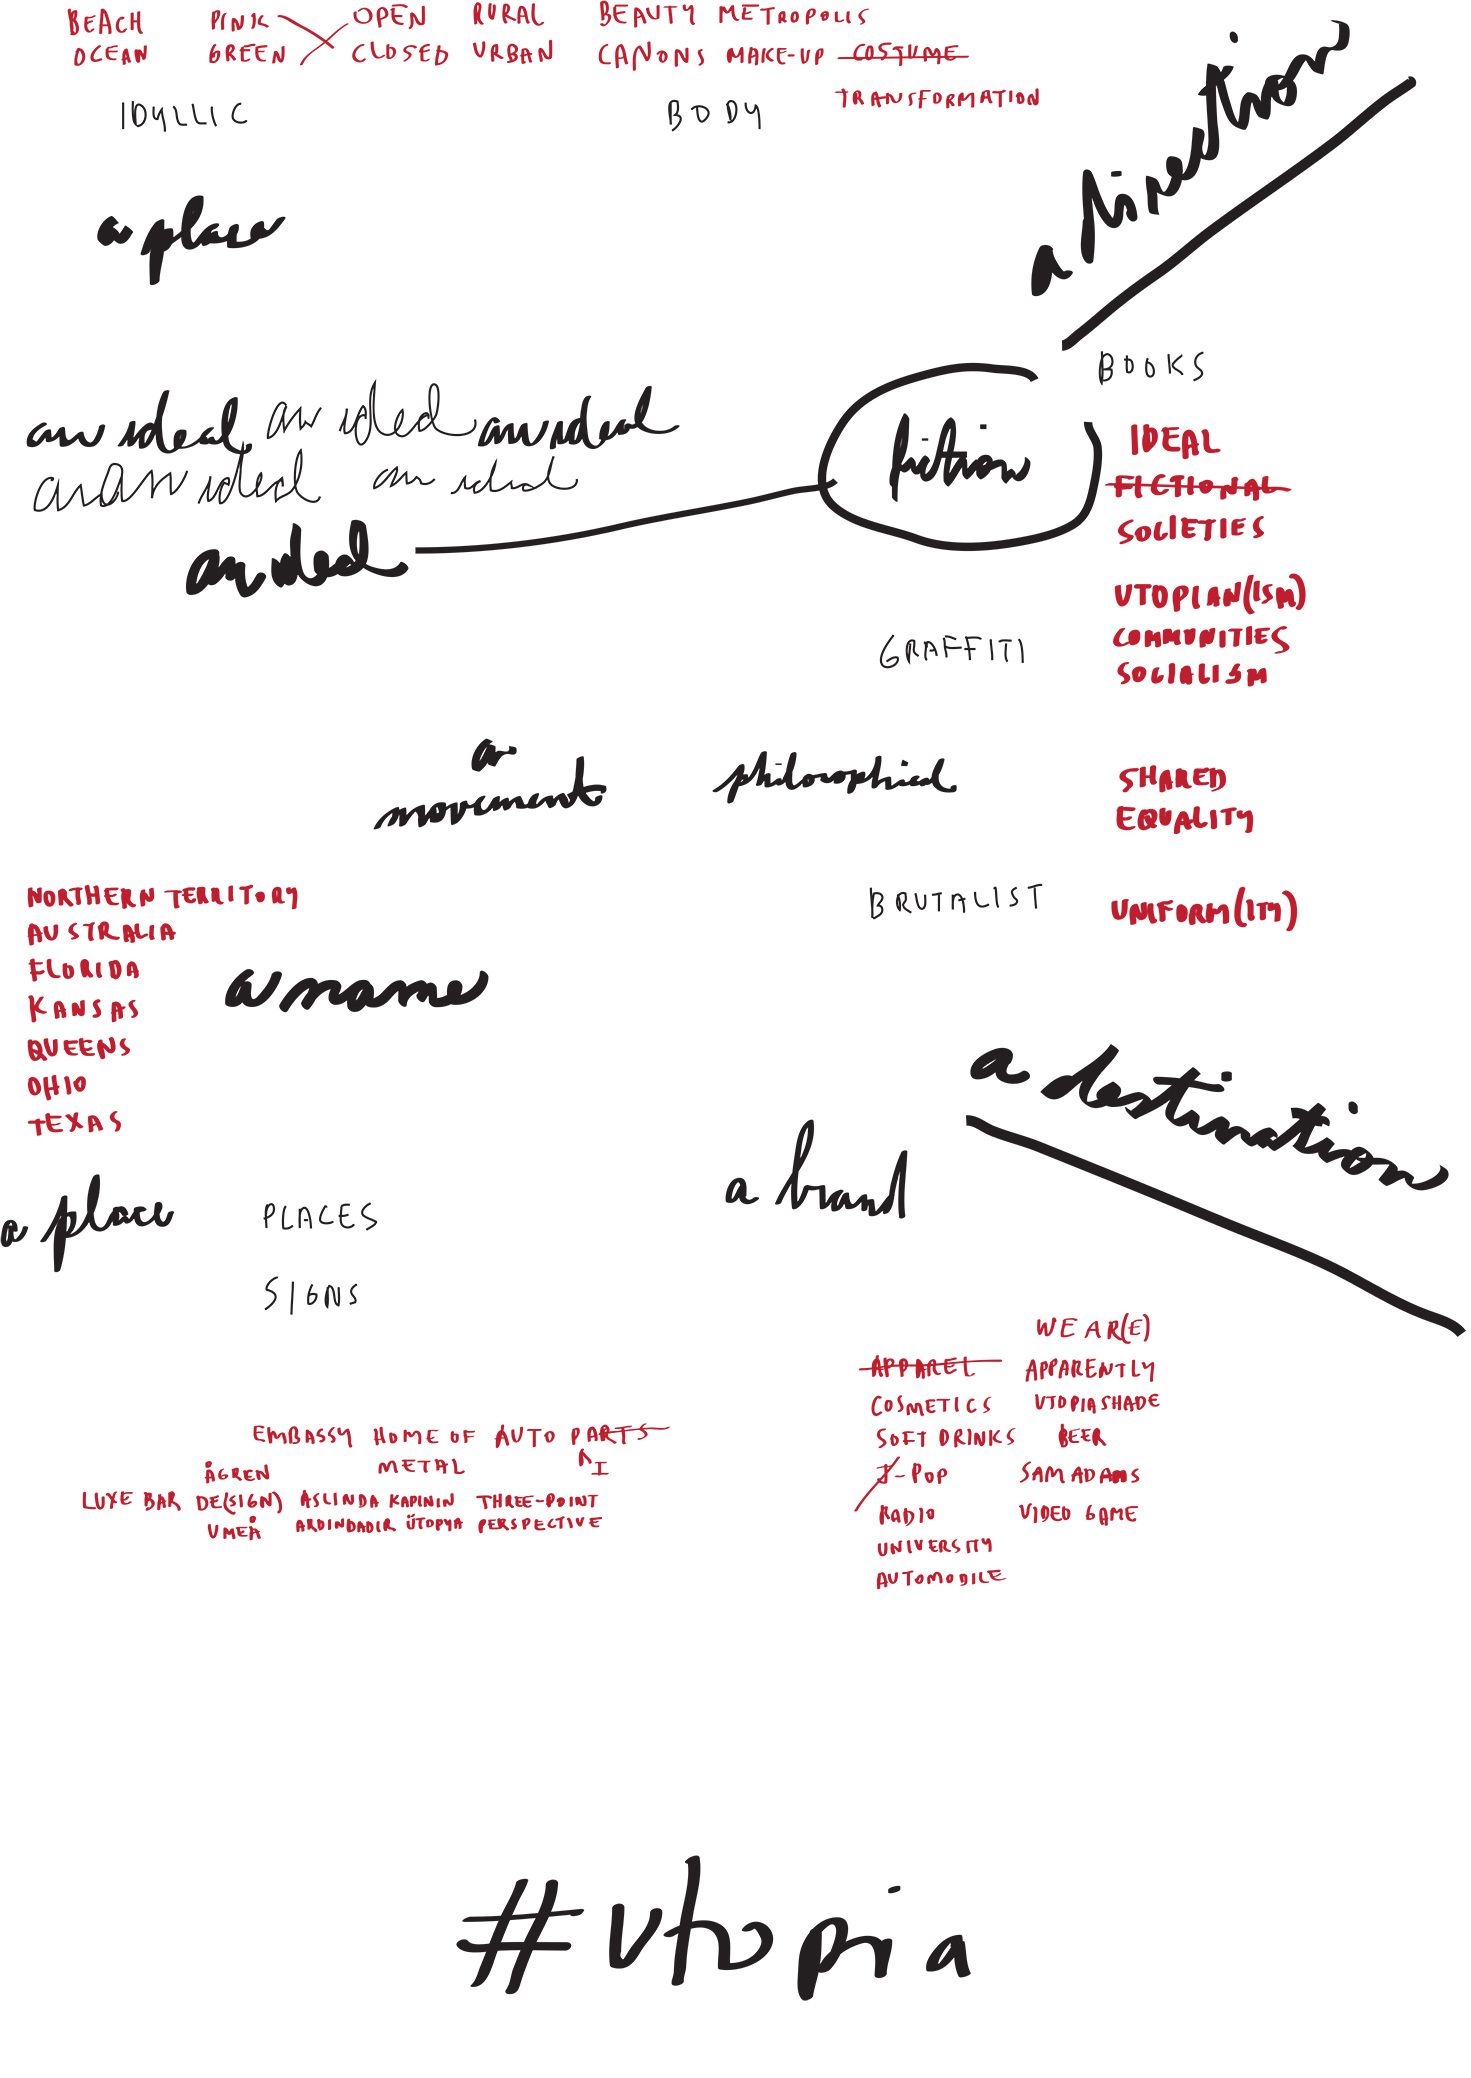 BEACH PINK OPEN RURAL BEAUTY METROPOLIS
OCEAN GREEN CLOSED URBAN CANONS MAKE-UP COSTUME
TRANSFORMATION
IDYLLIC BODY
a direction
a place
BOOKS
an ideal an ideal an ideal
an an ideal an ideal
an ideal
fiction
IDEAL
FICTIONAL
SOCIETIES
UTOPIAN(ISM)
COMMUNITIES
SOCIALISM
GRAFFITI
a
movement
philosophical
SHARED
EQUALITY
BRUTALIST
UNIFORM(ITY)
NORTHERN TERRITORY
AUSTRALIA
FLORIDA
KANSAS
QUEENS
OHIO
TEXAS
a name
a destination
a brand
a place
PLACES
SIGNS
EMBASSY HOME OF AUTO PARTS
METAL I
ÅGREN
LUXE BAR DE(SIGN) ASLINDA KAPININ THREE-POINT
UMEÅ ARDINDADIR ÜTOPYA PERSPECTIVE
WEAR(E)
APPAREL APPARENTLY
COSMETICS UTOPIASHADE
SOFT DRINKS BEER
J-POP SAM ADAMS
RADIO VIDEO GAME
UNIVERSITY
AUTOMOBILE
#utopia